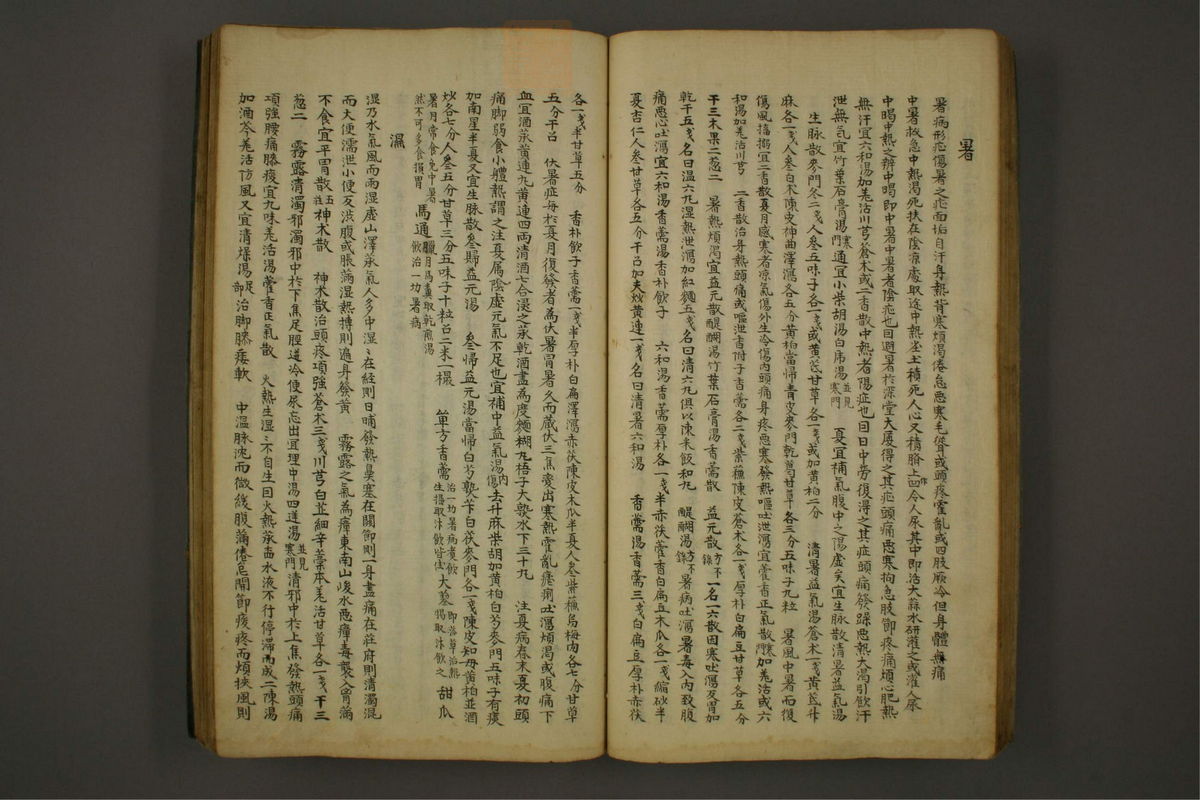 暑
暑病形症傷暑之症面垢自汗身熱背寒煩渴倦怠惡寒毛聳或頭疼霍亂或四肢厥冷但身體無痛
中暑救急中熱渴死扶在陰凉處取途中熱坐土積死人心又積臍上四令人尿其中即活大蒜水研灌之或灌人尿
中暍中熱之辨中暍即中暑中暑者陰症也曰避暑於深堂大厦得之其症頭痛惡寒拘急肢節疼痛煩心肥熱
無汗宜六和湯加羌活川芎蒼朮或二香散中熱者陽症也曰日中勞復得之其症頭痛發躁惡熱大渴引飮汗
泄無气宜竹葉石膏湯寒門通宜小柴胡湯白虎湯並見寒門 夏宜補氣腹中之陽虛矣宜生脉散淸暑益氣湯
生脉散麥門冬二戔人參五味子各一戔或黃芪甘草各一戔或加黃柏二分 淸暑益氣湯蒼朮一戔黃芪升
麻各一戔人參白朮陳皮神曲澤瀉各五分黃柏當歸靑皮麥門乾葛甘草各三分五味子九粒 暑風中暑而復
傷風搐搦宜二香散夏月感寒者凉氣傷外生冷傷內頭痛身疼惡寒發熱嘔吐泄瀉宜藿香正氣散寒門加羌活或六
和湯加羌活川芎 二香散治身熱頭痛或嘔泄香附子香薷各二戔紫蘓陳皮蒼朮各一戔厚朴白扁豆甘草各五分
干三木果二葱二 暑熱煩渴宜益元散醍醐湯竹葉石膏湯香薷散 益元散方不錄一名一六散因寒吐瀉及胃加
乾干五戔名曰溫六丸湿熱泄瀉加紅麯五戔名曰清六丸俱以陳米飯和丸 醍醐湯方不錄暑病吐瀉暑毒入內致腹
痛惡心吐瀉宜六和湯香薷湯香朴飮子 六和湯香薷厚朴各一戔半赤茯藿香白扁豆木瓜各一戔縮砂半
夏杏仁人參甘草各五分干召加夫炒黃連一戔名曰清暑六和湯 香薷湯香薷三戔白扁豆厚朴赤茯
各一戔半甘草五分 香朴飮子香薷一戔半厚朴白扁澤瀉赤茯陳皮木瓜半夏人參紫蘓烏梅肉各七分甘草
五分干召 伏暑症每於夏月復發者為伏暑冒暑久而藏伏三焦変出寒熱霍亂瘧痢吐瀉煩渴或腹痛下
血宜酒蒸黃連丸黃連四両淸酒七合浸之蒸乾酒盡為度麵糊丸梧子大熟水下三十丸 注夏病春末夏初頭
痛脚弱食小軆熱謂之注夏屬陰虛元氣不足也宜補中益氣湯內傷去升麻柴胡加黃柏白芍麥門五味子有痰
加南星半夏又宜生脉散參歸益元湯 參歸益元湯當歸白芍熟苄白茯麥門各一戔陳皮知母黃柏並酒
炒各七分人參五分甘草三分五味子十粒召二米一撮 單方香薷治一切暑病煮飮生搗取汁飮皆宜大蓼即㳺草治熱暍取汁飮之 甜瓜
暑月常食免中暑然不可多食損胃 馬通臘月馬糞取乾煎湯飮治一切暑病
濕
湿乃水氣風而雨湿虛山澤蒸氣人多中湿湿在經則日晡發熱鼻塞在關節則一身盡痛在莊府則清濁混
而大便濡泄小便反澁腹或脹滿湿熱搏則遍身發黃 霧露之氣為瘴東南山峻水惡瘴毒襲入胃滿
不食宜平胃散五莊神朮散 神朮散治頭疼項強蒼朮三戔川芎白芷細辛藁本羌活甘草各一戔干三
葱二 霧露淸濁邪濁邪中於下焦足脛逆冷便尿忘出宜理中湯四逆湯並見寒門淸邪中於上焦發熱頭痛
項強腰痛膝痠宜九味羌活湯藿香正氣散 火熱生湿湿不自生曰火熱蒸畜水液不行停滯而成二陳湯
加酒芩羌活防風又宜淸燥湯足部治脚膝痿軟 中溫脉沈而微緩腹滿倦怠關節疼疼而煩挾風則